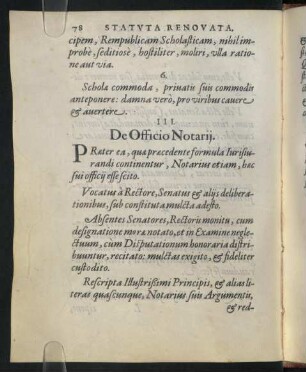 78 STATVTA RENOVATA.
cipem, Rempublicam Scholasticam, nihil im-
probè, seditiosè, hostiliter, moliri, vlla ratio-
ne aut via.
6.
Schola commoda, privatis suis commodis
anteponere: damna verò, pro viribus cavere
& avertere.
III.
De Officio Notarij.
PRæter ea, quæ præcedente formula Iurisiu-
randi continentur, Notarius etiam, hæc
sui officij esse scito.
Vocatus à Rectore, Senatus & alijs delibera-
tionibus, sub constituta mulcta adesto.
Absentes Senatores, Rectoris monitu, cum
designatione moræ notato, et in Examine negle-
ctuum, cùm Disputationum honoraria distri-
buuntur, recitato: mulctas exigito, & fideliter
custodito.
Rescripta Illustrissimi Principis, & alias li-
teras quascunque, Notarius suis Argumentis,
& red-